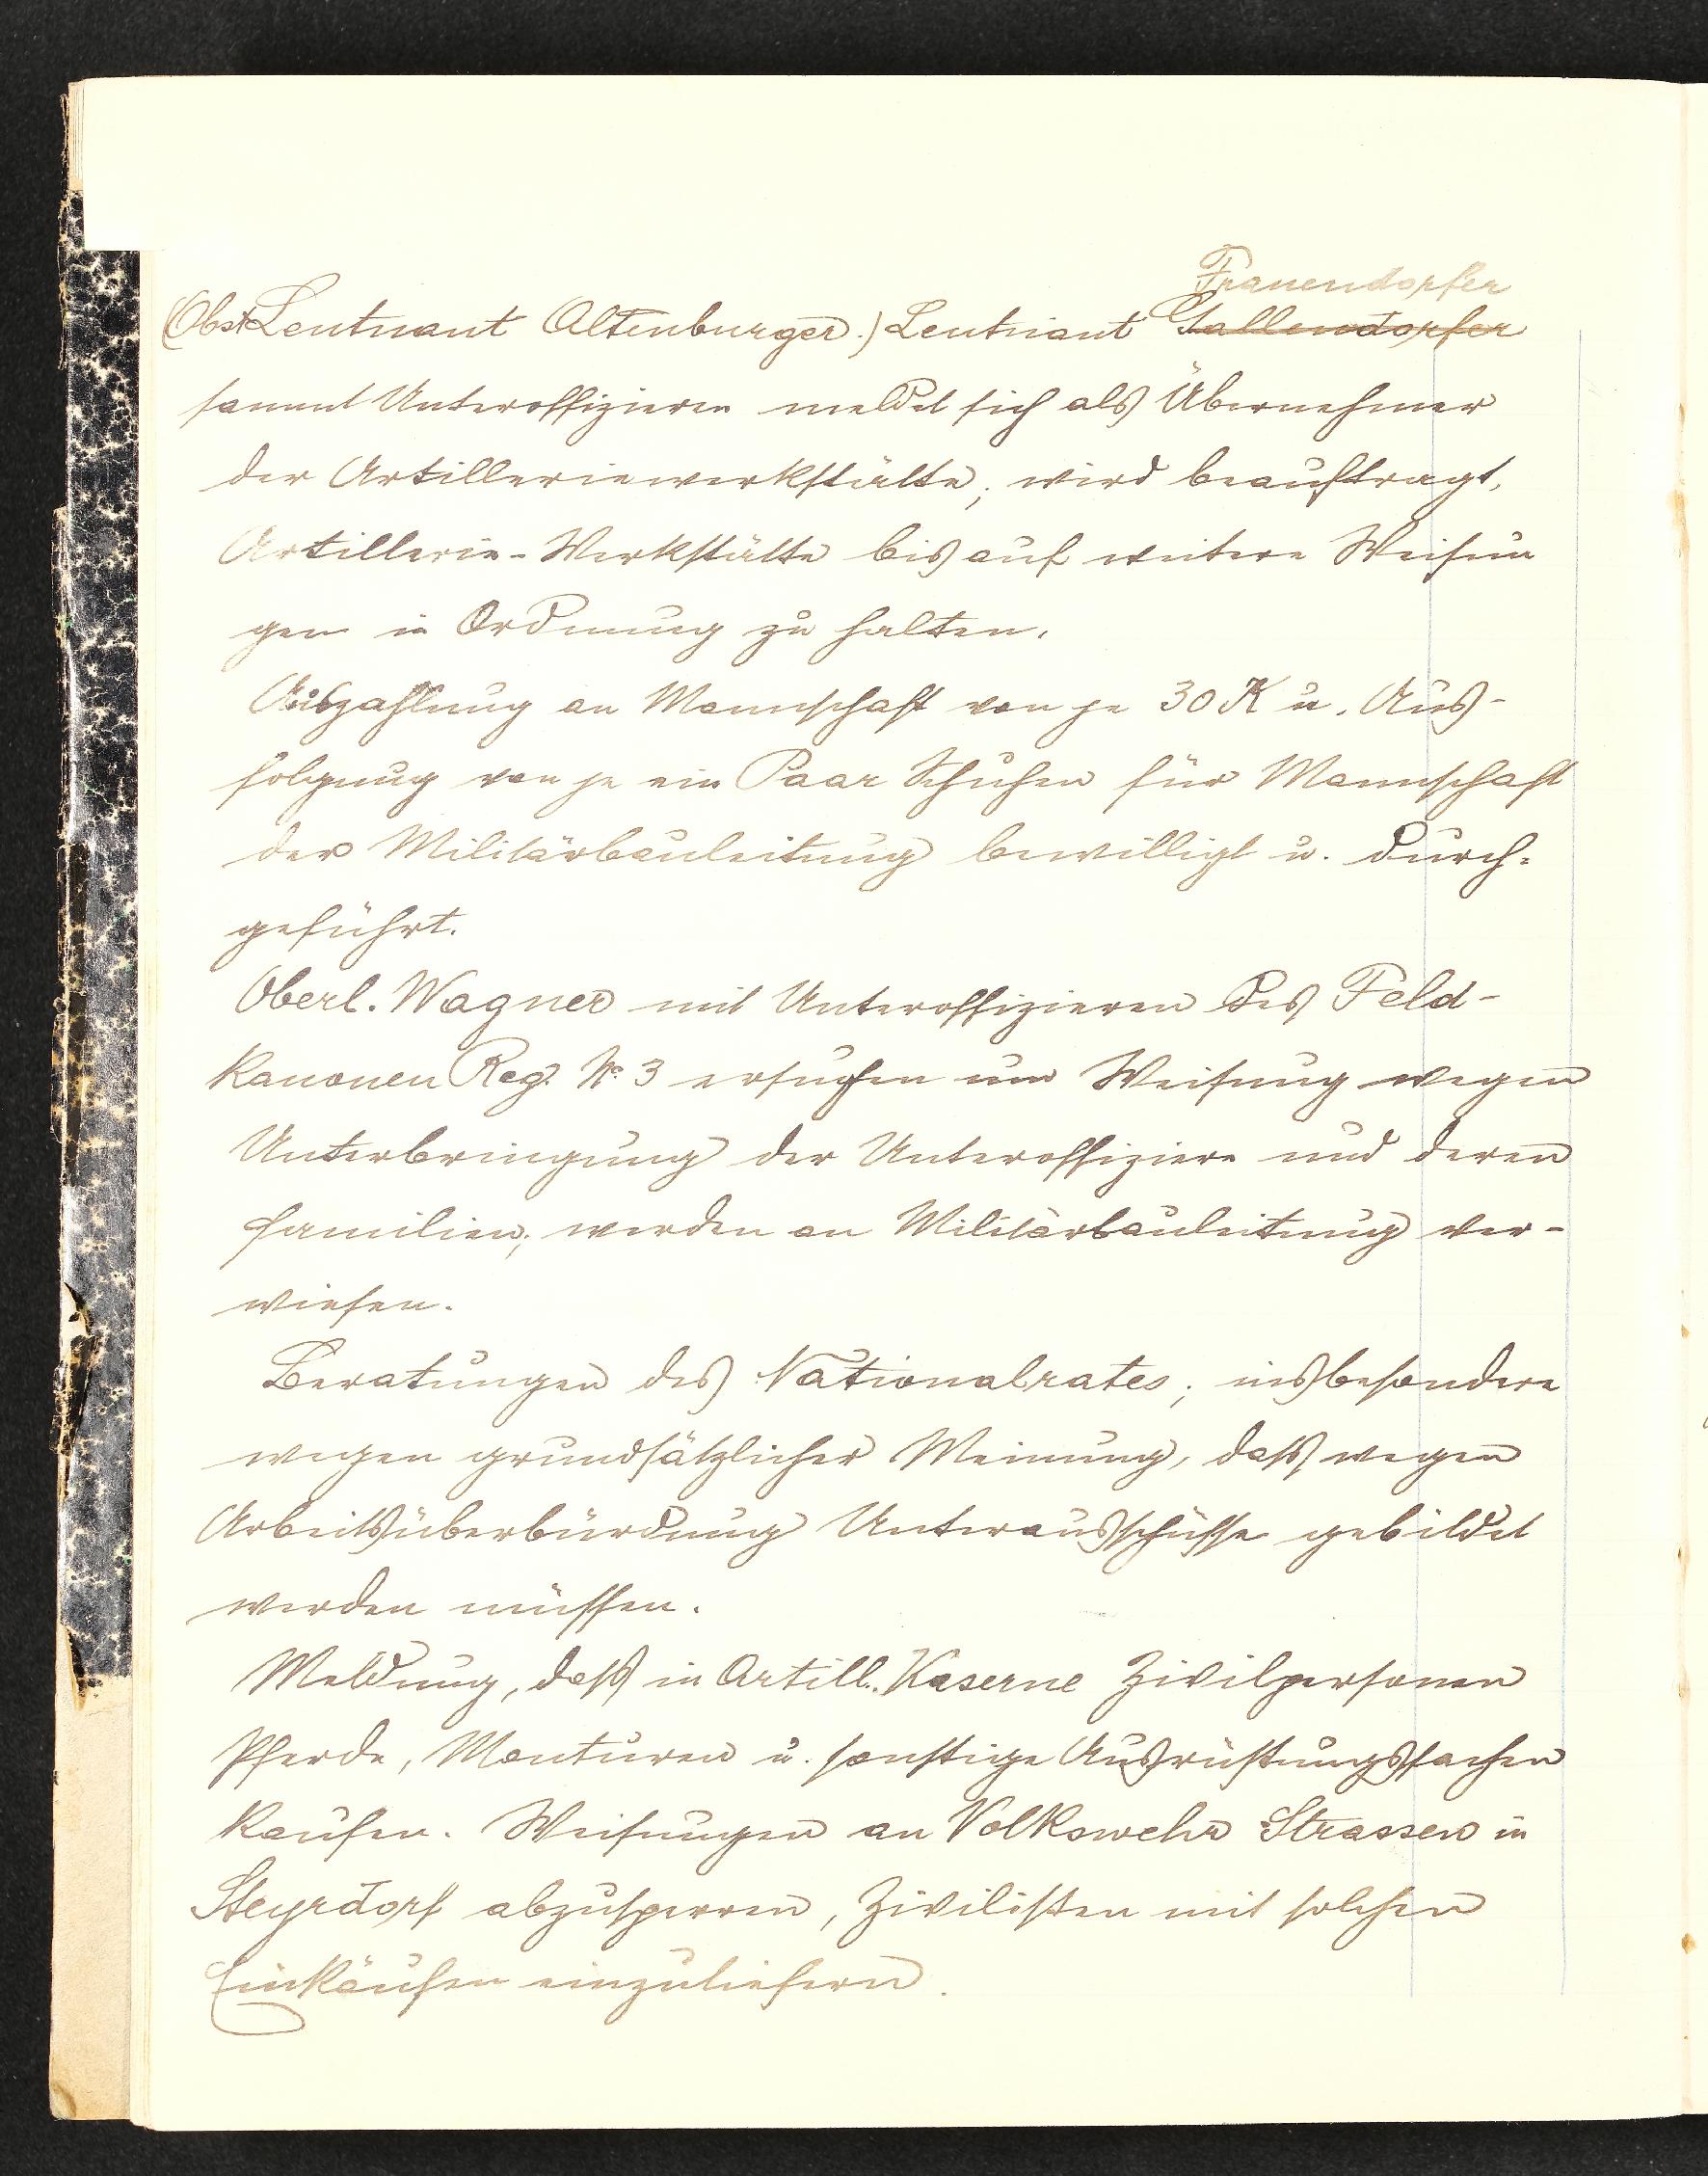 Frauendorfer
(Obst Leutnant Altenburger.) Leutnant Gallendorfer
sammt Unteroffizieren meldet sich als Übernehmer
der Artilleriewerkstätte; wird beauftragt,
Artillerie-Werkstätte bis auf weitere Weisun
gen in Ordnung zu halten.
Auszahlung an Mannschaft von je 30 K u. Aus-
folgung von je ein Paar Schuhen für Mannschaft
der Militärbauleitung bewilligt u. durch-
geführt.
Oberl. Wagner mit Unteroffizieren des Feld-
kanonen Reg. No 3 ersuchen um Weisung wegen
Unterbringung der Unteroffiziere und deren
Familien; werden an Militärbauleitung ver-
wiesen.
Beratungen des Nationalrates; insbesondere
wegen grundsätzlicher Meinung, dass wegen
Arbeitsüberbürdung Unterausschüsse gebildet
werden müssen.
Meldung, dass in Artill. Kaserne Zivilpersonen
Pferde, Monturen u. sonstige Ausrüstungssachen
kaufen. Weisungen an Volkswehr Strassen in
Steyrdorf abzusperren, Zivilisten mit solchen
Einkäufen einzuliefern.